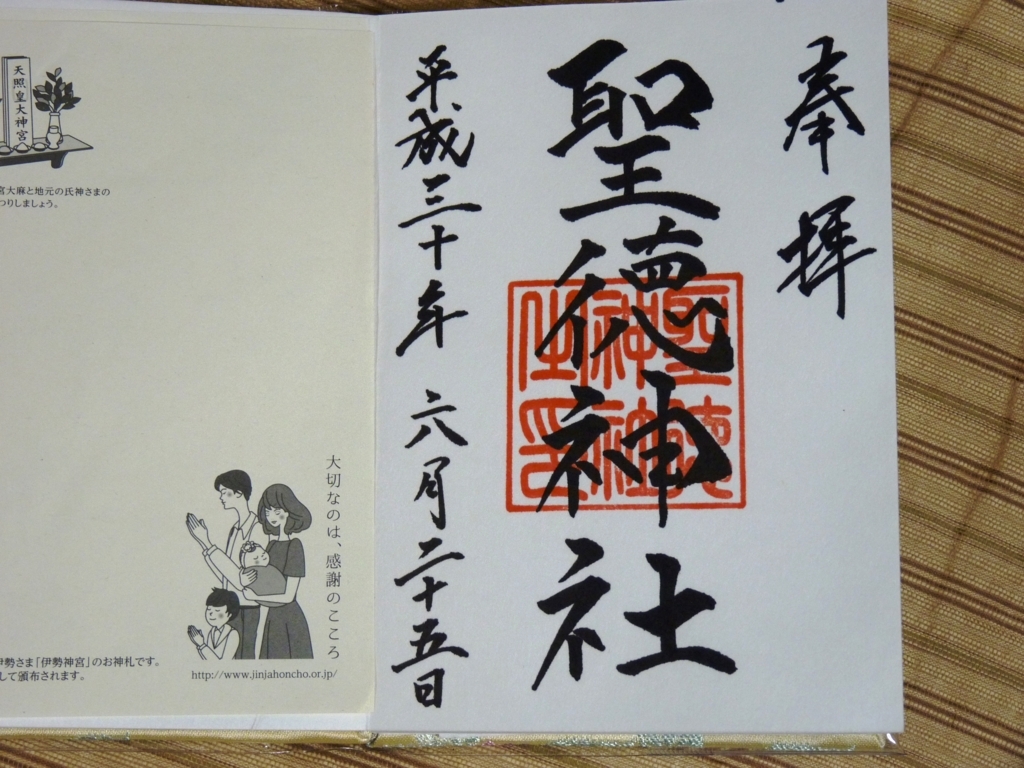 奉拝
聖徳神社
平成三十年 六月二十五日
聖徳
神社
之印
天照皇大神宮
宮大麻と地元の氏神さまの
つりしましょう。
大切なのは、感謝のこころ
伊勢さま「伊勢神宮」のお神札です。
して頒布されます。
http://www.jinjahoncho.or.jp/